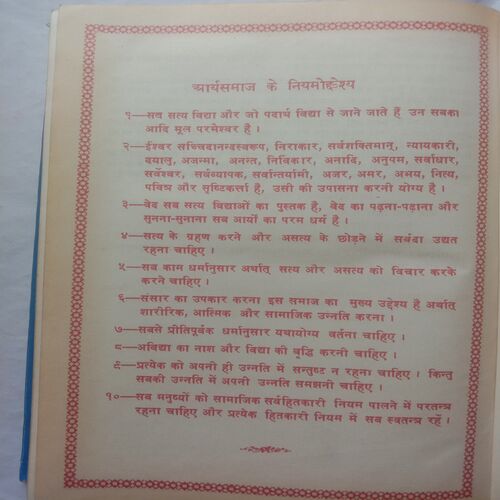 आर्यसमाज के नियमोद्देश्य
१—सब सत्य विद्या और जो पदार्थ विद्या से जाने जाते हैं उन सबका
आदि मूल परमेश्वर है ।
२—ईश्वर सच्चिदानन्दस्वरूप, निराकार, सर्वशक्तिमान्, न्यायकारी,
दयालु, अजन्मा, अनन्त, निर्विकार, अनादि, अनुपम, सर्वाधार,
सर्वेश्वर, सर्वव्यापक, सर्वान्तर्यामी, अजर, अमर, अभय, नित्य,
पवित्र और सृष्टिकर्त्ता है, उसी की उपासना करनी योग्य है ।
३—वेद सब सत्य विद्याओं का पुस्तक है, वेद का पढ़ना-पढ़ाना और
सुनना-सुनाना सब आर्यों का परम धर्म है ।
४—सत्य के ग्रहण करने और असत्य के छोड़ने में सर्वदा उद्यत
रहना चाहिए ।
५—सब काम धर्मानुसार अर्थात् सत्य और असत्य को विचार करके
करने चाहिए ।
६—संसार का उपकार करना इस समाज का मुख्य उद्देश्य है अर्थात्
शारीरिक, आत्मिक और सामाजिक उन्नति करना ।
७—सबसे प्रीतिपूर्वक धर्मानुसार यथायोग्य वर्तना चाहिए ।
८—अविद्या का नाश और विद्या की वृद्धि करनी चाहिए ।
९—प्रत्येक को अपनी ही उन्नति में सन्तुष्ट न रहना चाहिए । किन्तु
सबकी उन्नति में अपनी उन्नति समझनी चाहिए ।
१०—सब मनुष्यों को सामाजिक सर्वहितकारी नियम पालने में परतन्त्र
रहना चाहिए और प्रत्येक हितकारी नियम में सब स्वतन्त्र रहें ।